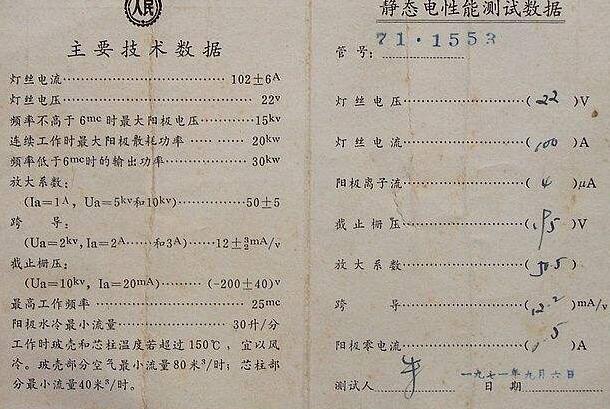 人民
主要技术数据
灯丝电流……………………102±6A
灯丝电压……………………22v
频率不高于6mc时最大阳极电压………15kv
连续工作时最大阳极散耗功率………20kw
频率低于6mc时的输出功率…………30kw
放大系数:
(Ia=1A, Ua=5kv和10kv)…………50±5
跨 导:
(Ua=2kv, Ia=2A……和3A)……12±3/2mA/v
截止栅压:
(Ua=10kv, Ia=20mA)………(-200±40)v
最高工作频率……………………25mc
阳极水冷最小流量………………30升/分
工作时玻壳和芯柱温度若超过150℃,宜以风
冷。玻壳部分空气最小流量80米³/时;芯柱部
分最小流量40米³/时。
静态电性能测试数据
管号: 71·1553
灯丝电压……………(22)V
灯丝电流……………(100)A
阳极离子流…………(4)μA
截止栅压……………(195)V
放大系数……………(50.5)
跨 导……………(12.2)mA/v
阳极零电流…………( )A
测试人
一九七一年九月六日
日期